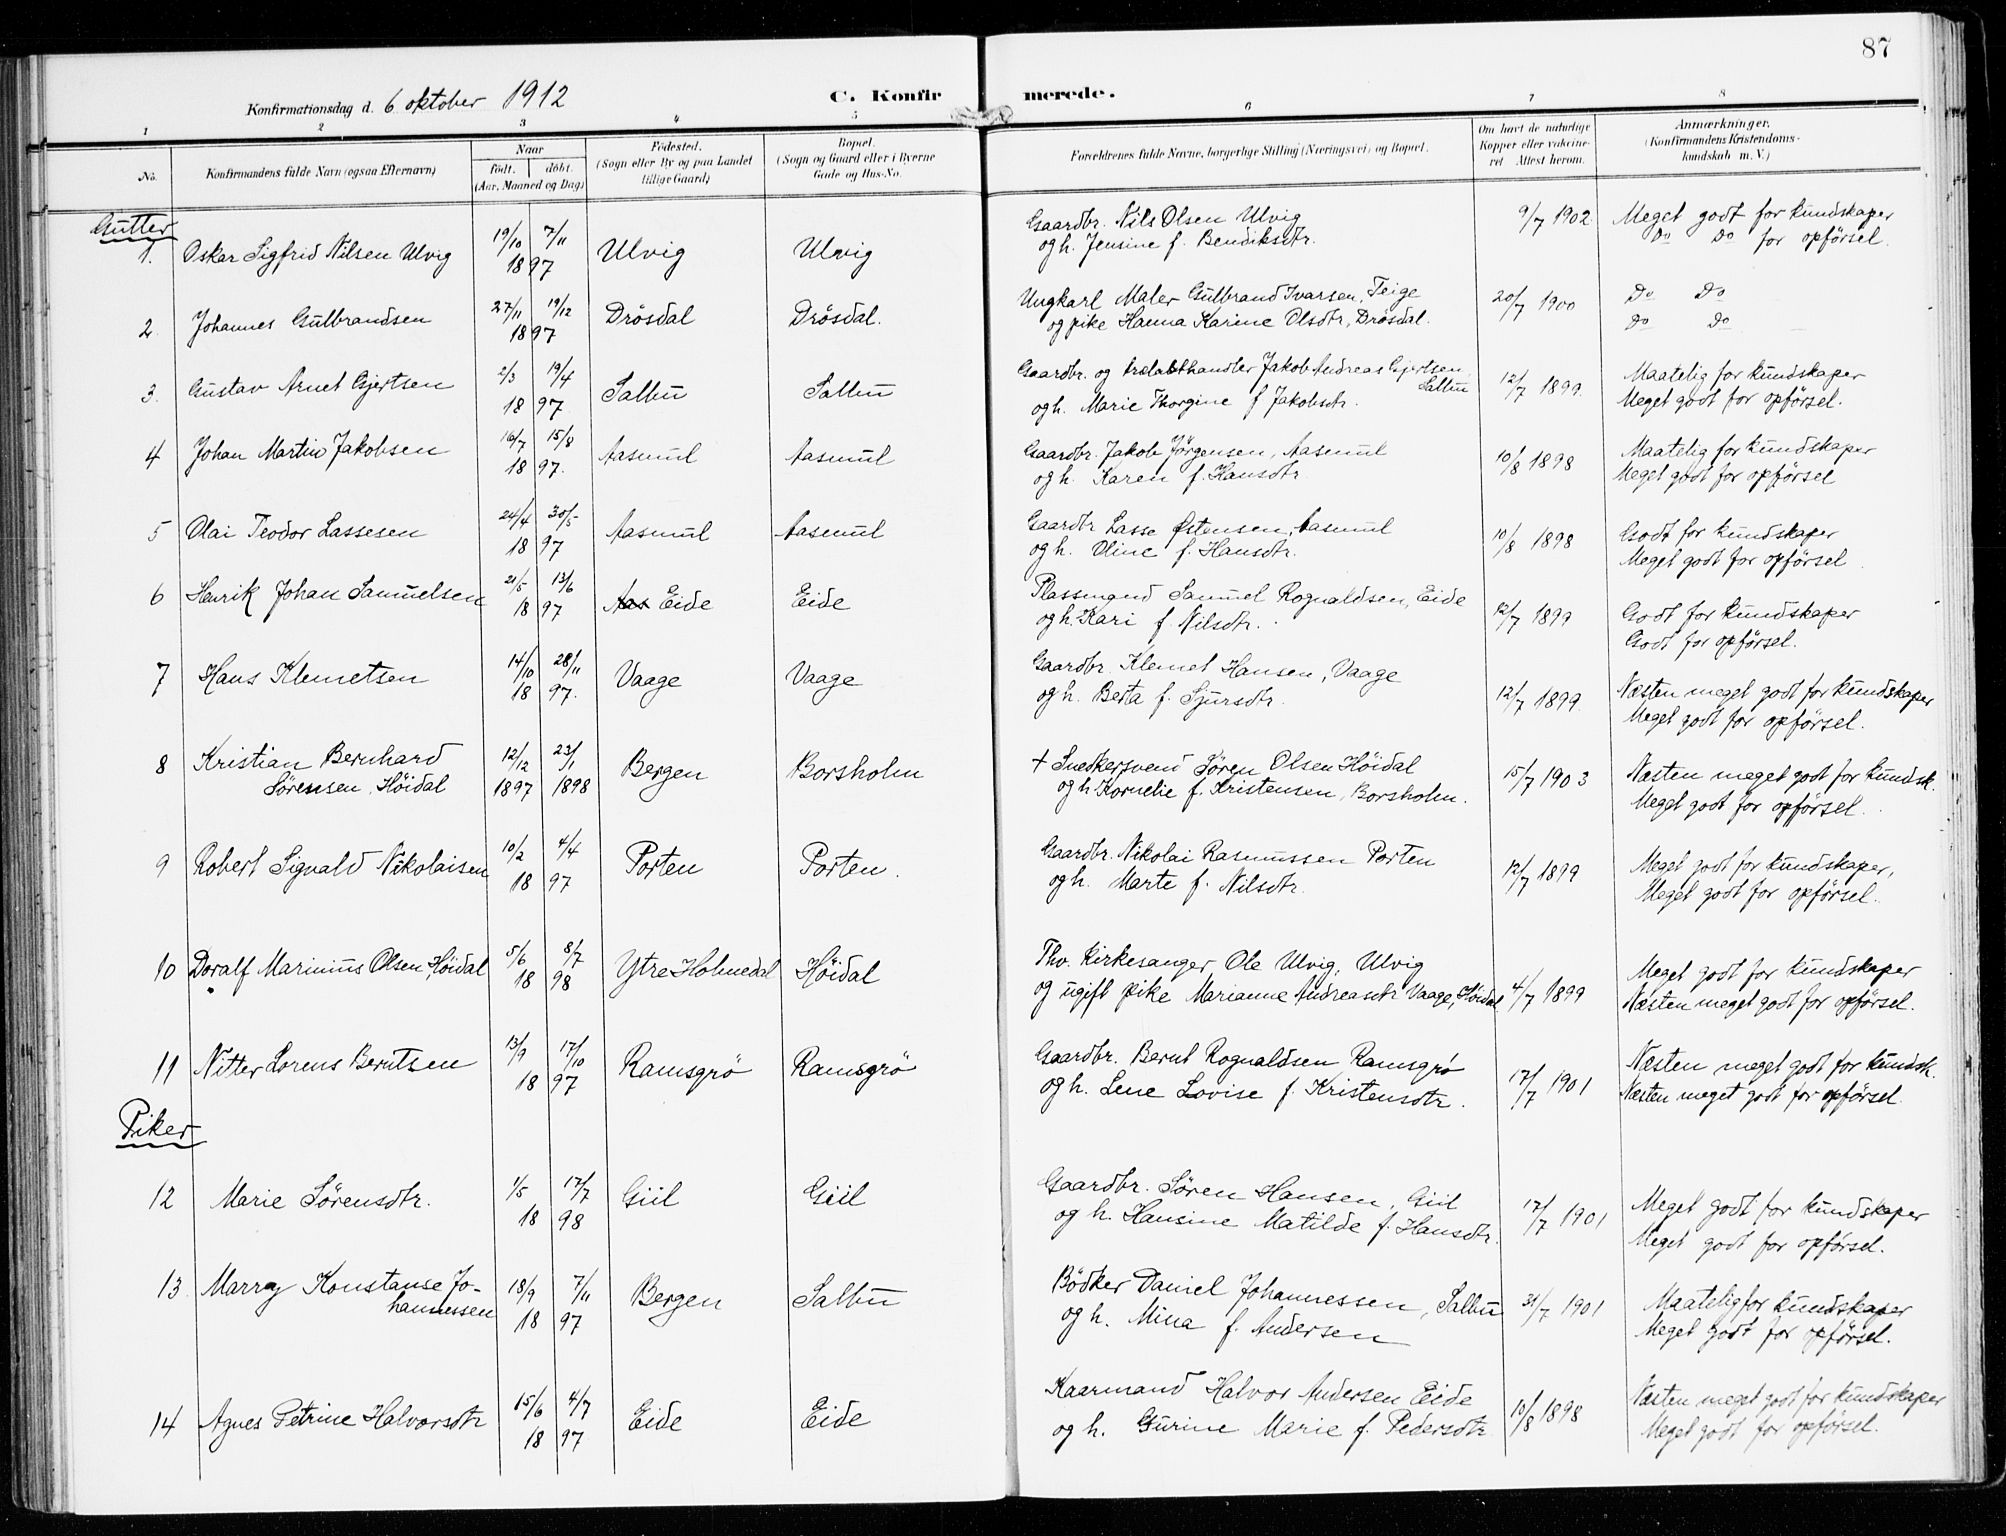 87
Konfirmationsdag d. 6 oktober 1912 C. Konfirmerede.
1 2 3 4 5 6 7 8
No. Konfirmandens fulde Navn (ogsaa Efternavn) Naar født. døbt. (Aar, Maaned og Dag) Fødested. (Sogn eller By og paa Landet tillige Gaard) Bopæl. (Sogn og Gaard eller i Byerne Gade og Hus-No. Forældrenes fulde Navne, borgerlige Stilling (Næringsvei) og Bopæl. Om havt de naturlige Kopper eller vakcineret Attest herom. Anmærkninger. (Konfirmandens Kristendomskundskab m. V.)
Gutter
1. Oskar Sigfrid Nilsen Ulvig 19/10 7/11 1897 Ulvig Ulvig Gaardbr. Nils Olsen Ulvig 9/7 1902 Meget godt for kundskaper
og h. Jensine f. Bendiksdtr. Do Do for opförsel.
2. Johannes Gulbrandsen 27/11 19/12 1897 Drösdal Drösdal. Ungkarl Maler Gulbrand Ivarsen, Teige 20/7 1900 Do Do
og pike Hanna Karine Olsdtr, Drösdal. Do Do
3. Gustav Arnet Gjertsen 2/3 19/4 1897 Salbu Salbu Gaardbr. og trelasthandler Jakob Andreas Gjertsen, Salbu 12/7 1899. Maatelig for kundskaper
og h. Marie Thorgine f Jakobsdtr. Meget godt for opförsel.
4 Johan Martin Jakobsen 16/7 15/8 1897. Aasmul Aasmul Gaardbr. Jakob Jörgensen, Aasmul 10/8 1898 Maatelig for kundskaper
og h. Karen f. Hansdtr. Meget godt for opförsel
5 Olai Teodor Lassesen 24/4 30/5 1897 Aasmul Aasmul Gaardbr Lasse Østensen, Aasmul 10/8 1898 Godt for kundskaper
og h. Oline f. Hansdtr. Meget godt for opförsel
6 Henrik Johan Samuelsen 21/5 13/6 1897 Aas Eide Eide Plassmand Samuel Rognaldsen, Eide 12/7 1899 Godt for kundskaper
og h. Kari f. Nilsdtr. Godt for opförsel.
7 Hans Klemetsen 14/10 28/11 1897. Vaage Vaage Gaardbr. Klemet Hansen, Vaage 12/7 1899. Næsten meget godt for kundskaper
og h. Berta f. Sjursdtr. Meget godt for opförsel.
8 Kristian Bernhard 12/12 23/1 Bergen Borsholm + Snedkersvend Sören Olsen Höidal 15/7 1903 Næsten meget godt for kundsk.
Sörensen Höidal 1897 1898 og h Kornelie f. Kristensen, Borsholm. Meget godt for opförsel.
9 Robert Sigvald Nikolaisen 10/2 4/4 1897 Porten Porten. Gaardbr. Nikolai Rasmussen Porten 12/7 1899 Meget godt for kundskaper,
og h. Marte f. Nilsdtr. Meget godt for opförsel.
10 Doralf Marinius Olsen Höidal 5/6 8/7 1898 Ytre Holmedal Höidal Thv. Kirkesanger Ole Ulvig, Ulvig 4/7 1899 Meget godt for kundskaper
og ugift pike Marianne Andreasdtr Vaage, Höidal Næsten meget godt for opförsel.
11 Nitter Lorens Berntsen 13/9 17/10 1897 Ramsgrö Ramsgrö Gaardbr. Bernt Rognaldsen Ramsgrö 17/7 1901 Næsten meget godt for kundsk.
og h. Lene Lovise f. Kristensdtr. Næsten meget godt for opförsel.
Piker
12 Marie Sörensdtr. 1/5 17/7 1898 Giil Giil Gaardbr. Sören Hansen, Giil 17/7 1901 Meget godt for kundskaper
og h. Hansine Matilde f. Hansdtr. Meget godt for opförsel.
13. Marry Konstanse Jo- 18/9 7/11 1897 Bergen Salbu Bödker Daniel Johannessen, Salbu 31/7 1901 Maatelig for kundskaper
hannessen og h. Mina f. Andersen Meget godt for opförsel.
14 Agnes Petrine Halvorsdtr 15/6 4/7 1897 Eide Eide Kaarmand Halvor Andersen Eide 10/8 1898 Næsten meget godt for kundskaper
og h. Gurine Marie f. Pedersdtr. Meget godt for opförsel.